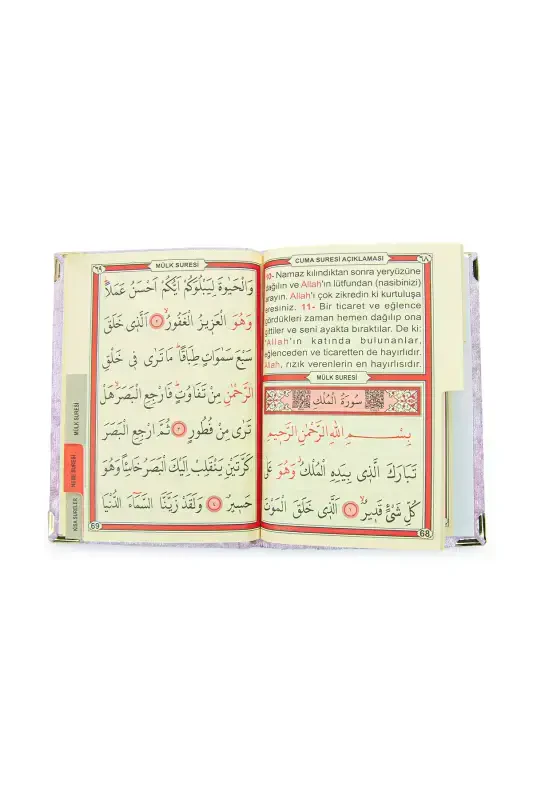 CUMA SURESİ AÇIKLAMASI
٦٨
10- Namaz kılındıktan sonra yeryüzüne
dağılın ve Allah'ın lütfundan (nasibinizi)
arayın. Allah'ı çok zikredin ki kurtuluşa
eresiniz. 11- Bir ticaret ve eğlence
gördükleri zaman hemen dağılıp ona
gittiler ve seni ayakta bıraktılar. De ki:
"Allah'ın katında bulunanlar,
eğlenceden ve ticaretten de hayırlıdır.
Allah, rızık verenlerin en hayırlısıdır.
MÜLK SURESİ
سُورَةُ الْمُلْكِ
بِسْمِ اللهِ الرَّحْمٰنِ الرَّحِيمِ
تَبَارَكَ الَّذِى بِيَدِهِ الْمُلْكُ وَهُوَ عَلٰى
كُلِّ شَىْءٍ قَدِيرٌ ١ اَلَّذِى خَلَقَ الْمَوْتَ
68
٦٩
MÜLK SURESİ
وَالْحَيٰوةَ لِيَبْلُوَكُمْ اَيُّكُمْ اَحْسَنُ عَمَلًا
وَهُوَ الْعَزِيزُ الْغَفُورُ ٢ اَلَّذِى خَلَقَ
سَبْعَ سَمٰوَاتٍ طِبَاقًا مَا تَرٰى فِى خَلْقِ
الرَّحْمٰنِ مِنْ تَفَاوُتٍ فَارْجِعِ الْبَصَرَ هَلْ
تَرٰى مِنْ فُطُورٍ ٣ ثُمَّ ارْجِعِ الْبَصَرَ
كَرَّتَيْنِ يَنْقَلِبْ اِلَيْكَ الْبَصَرُ خَاسِئًا وَهُوَ
حَسِيرٌ ٤ وَلَقَدْ زَيَّنَّا السَّمَاءَ الدُّنْيَا
69
MÜLK SURESİ
NEBE SURESİ
KISA SURELER